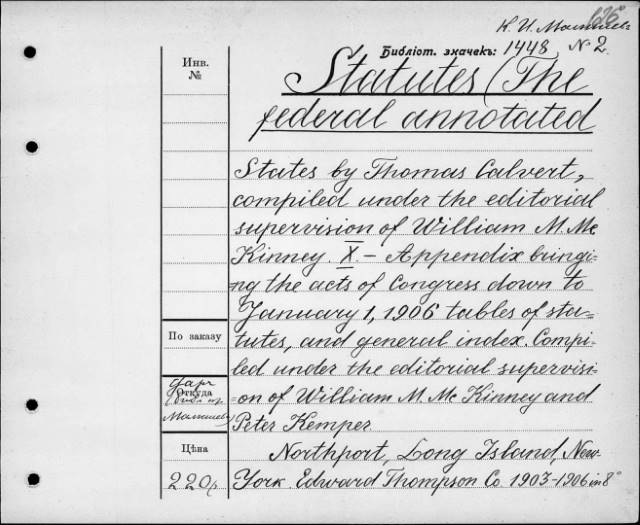 К. И. Малышев
626
Библіот. значекъ: 1448, № 2
Инв.
№
Statutes (The
federal annotated
States by Thomas Calvert,
compiled under the editorial
supervision of William M. Mc
Kinney. X. – Appendix bringi-
ng the acts of Congress down to
January 1, 1906 tables of sta-
tutes, and general index. Compi-
led under the editorial supervisi-
on of William M. Mc Kinney and
Peter Kemper
Northport, Long Island, New-
York. Edward Thompson Co. 1903–1906 in 8°
По заказу
Откуда
Малышев
Цѣна
220 р.